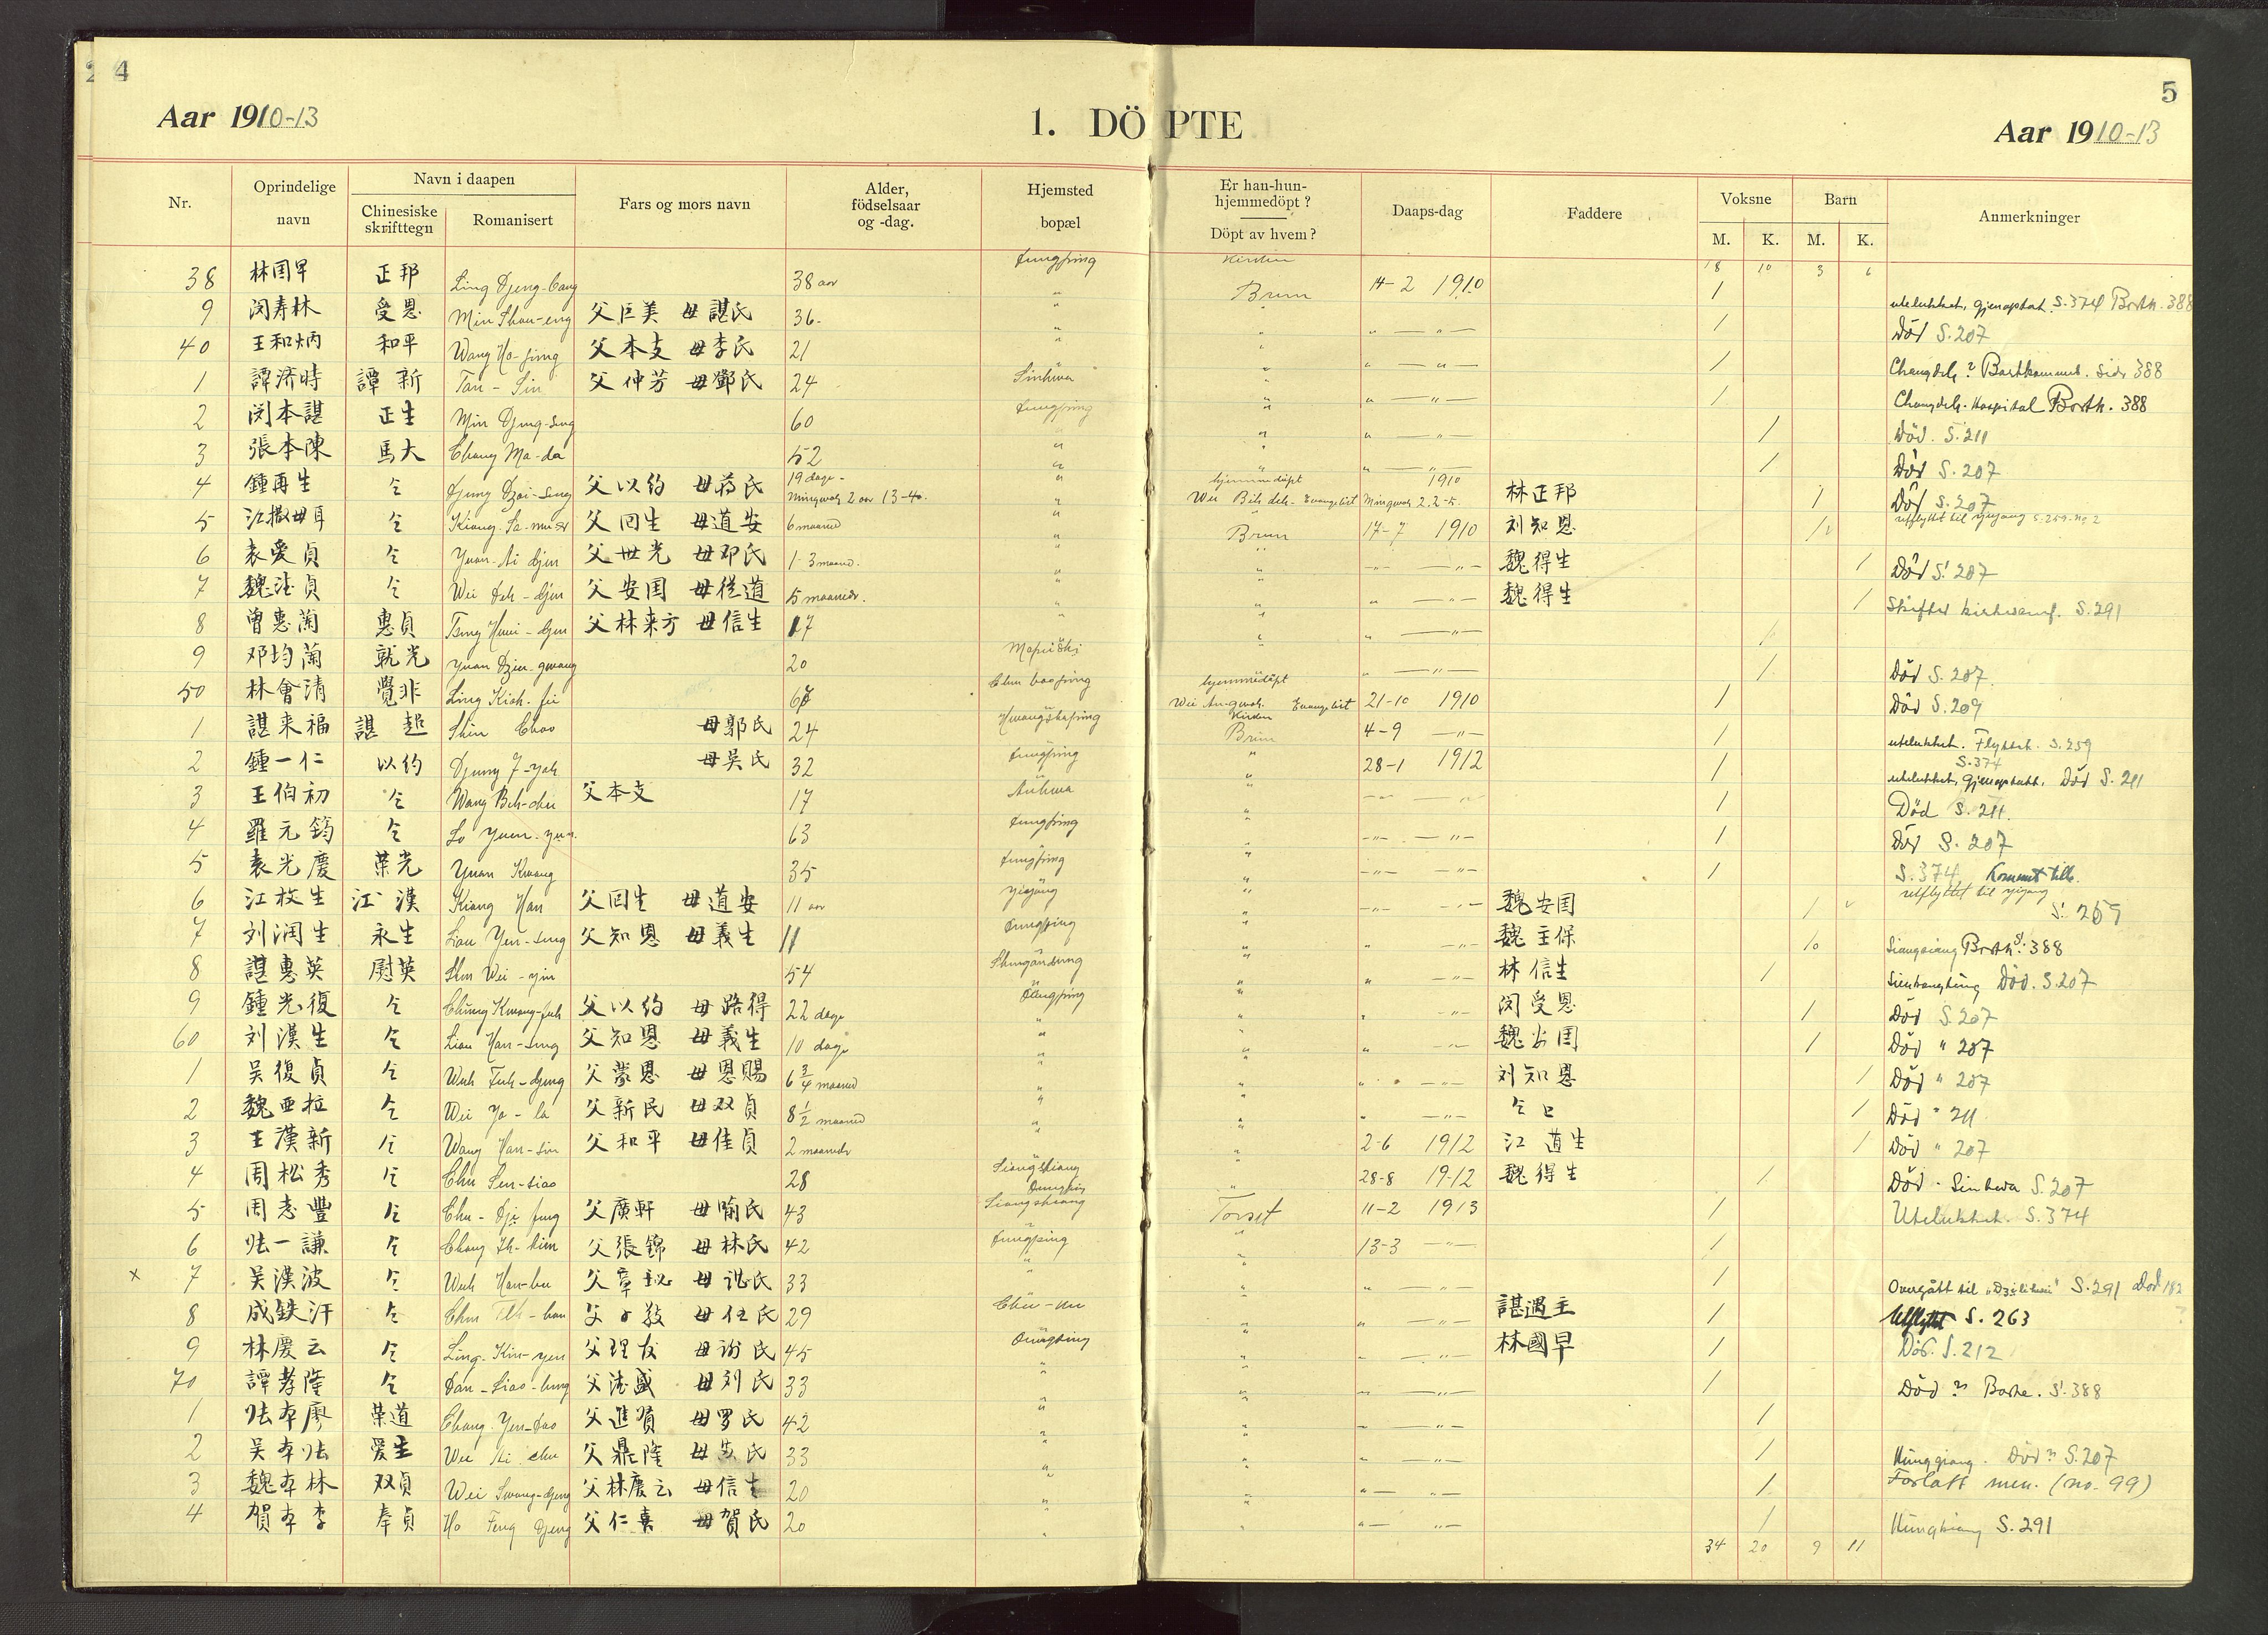 4
5
Aar 1910-13
1. DÖPTE
Aar 1910-13
Nr. Oprindelige navn Navn i daapen Chinesiske skrifttegn Romanisert Fars og mors navn Alder, födselsaar og -dag. Hjemsted bopæl Er han-hun-hjemmedöpt? Döpt av hvem? Daaps-dag Faddere Voksne M. K. Barn M. K. Anmerkninger
18 10 3 6
38 林囯早 正邦 Ling Djeng-bang 38 aar Tungping Kirken Brun 14-2 1910 / utelukket, gjenoptat S.374 Bortk. 388
9 闵寿林 受恩 Min Shou-eng 父巨美 母諶氏 36. " " " — " — / Död S.207
40 王和炳 和平 Wang Ho-ping 父本支 母李氏 21 " " " — " — / Changdeh? Bortkommet. Side 388
1 譚济時 譚新 Tan-Sin 父仲芳 母鄧氏 24 Sinhwa " " — " — / Changdeh. Hospital Bortk. 388
2 闵本諶 正生 Min Djeng-seng 60 Tungping " " — " — / Död. S.211
3 張本陳 馬大 Chang Ma-da 52 " " " — " — / Död S.207
4 鍾再生 仝 Djung Dzai-seng 父以约 母蒋氏 19 dage - Mingwoh 2 aar 13-40. " hjemmedöpt Wei Evangelist 1910 Mingwoh 2.2-5. 林正邦 / Död S.207
5 江撒母耳 仝 Kiang-Sa-mu-er 父囘生 母道安 6 maaned " Brun 17-7 1910 刘知恩 / utflyttet til Yiyang S.259. No 2
6 袁爱貞 仝 Yuan-Ai djen 父世光 母邓氏 1-3 maaned. " " — " — 魏得生 / Död S.207
7 魏德貞 仝 Wei Deh-djen 父安囯 母従道 5 maaneder. " " " — " — 魏得生 / Skiftet kirkesamf. S.291
8 曾惠蘭 惠貞 Tseng Huei-djen 父林来方 母信生 17 " " " — " — /
9 邓均蘭 就光 Yuan Dziu-gwang 20 " " — " — / Död S.207.
50 林會清 覺非 Ling Kioh-fei hjemmedöpt Wei An-gwoh. Evangelist 21-10 1910 / Död S.209
1 諶来福 諶超 Shen Chao 母郭氏 24 Kirken Brun 4-9 — " — / utelukket. Flyttet. S.259
2 鍾一仁 以约 Djung I-yoh 母吴氏 32 Tungping " 28-1 1912 / S.374 utelukket, gjenoptatt, Död S.211
3 王伯初 仝 Wang Beh-chu 父本支 17 Anhwa " — " — / Död S.211.
4 羅元鈞 仝 Lo Yuen-yun 63 Tungping " — " — / Död S.207
5 袁光慶 荣光 Yuan Kwang 35 Tungping " — " — / S.374 Kommet tilb.
6 江枚生 江漢 Kiang Han 父囘生 母道安 11 aar Yiyang " — " — 魏安囯 / utflyttet til Yiyang S. 259
7 刘润生 永生 Liau Yen-seng 父知恩 母義生 11 Tungping " " — " — 魏主保 Siangsiang Bortk. S. 388
8 諶惠英 慰英 Shen Wei-yin 54 " " — " — 林信生 / Död. S.207
9 鍾光復 仝 Chung Kwang-fuh 父以约 母路得 22 dage Tungping " — " — 闵受恩 / Död S.207
60 刘漢生 仝 Liau Han-seng 父知恩 母義生 10 dage " " " — " — 魏安囯 / Död " 207
1 吴復貞 仝 Wuh Fuh-djeng 父蒙恩 母恩賜 6 3/4 maaned " " " — " — 刘知恩 / Död " 207
2 魏亜拉 仝 Wei Ya-la 父新民 母双貞 8 1/2 maaned " " — " — 仝上 / Död " 211
3 王漢新 仝 Wang Han-sin 父和平 母佳貞 2 maaneder " " 2-6 1912 江道生 / Död " 207
4 周松秀 仝 28 Siangshiang Tungping " 28-8 1912 魏得生 / Död - Sinhwa S.207
5 周志豐 仝 Chu-Dji fung 父廣軒 母喻氏 43 Siangshiang Torset 11-2 1913 / Utelukket. S.374
6 张一謙 仝 Chang Ih-kien 父張錦 母林氏 42 Tungping " 13-3 — " — /
x 7 吴漢波 仝 Wuh Han-bu 33 " " " — " — / Overgått til "Dzi li huei" S.291 död 182
8 成鉄汗 仝 母任氏 29 " " — " — 諶遇主 / Utflyttet S.263
9 林慶云 仝 Ling-Kin-yen 父理友 母谢氏 45 Tungping " " — " — 林國早 / Död. S.212
70 譚孝隆 仝 Tan-Siao-lung 父德盛 母刘氏 33 " " " — " — / Död? Bortk. S.388
1 张本廖 荣道 Chang-Yen-Dao 父進質 母罗氏 42 " " " — " — /
2 吴本张 爱生 父鼎隆 33 " " " — " — / Hungkiang. Död? S.207
3 魏本林 双貞 Wei Swang-djeng 父林慶云 母信生 20 " " " — " — / Forlatt men. (no. 99)
4 賀本李 奉貞 Ho Feng Djeng 父仁熹 母賀氏 20 " " " — " — / Hungkiang S.291
34 20 9 11